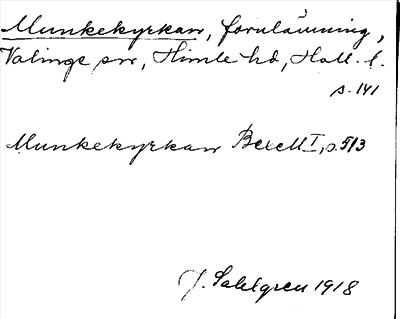 Munkekyrkan, fornlämning,
Valinge sn, Himle hd, Hall. l.
s. 141
Munkekyrkan Bexell I, s. 513
J. Sahlgren 1918